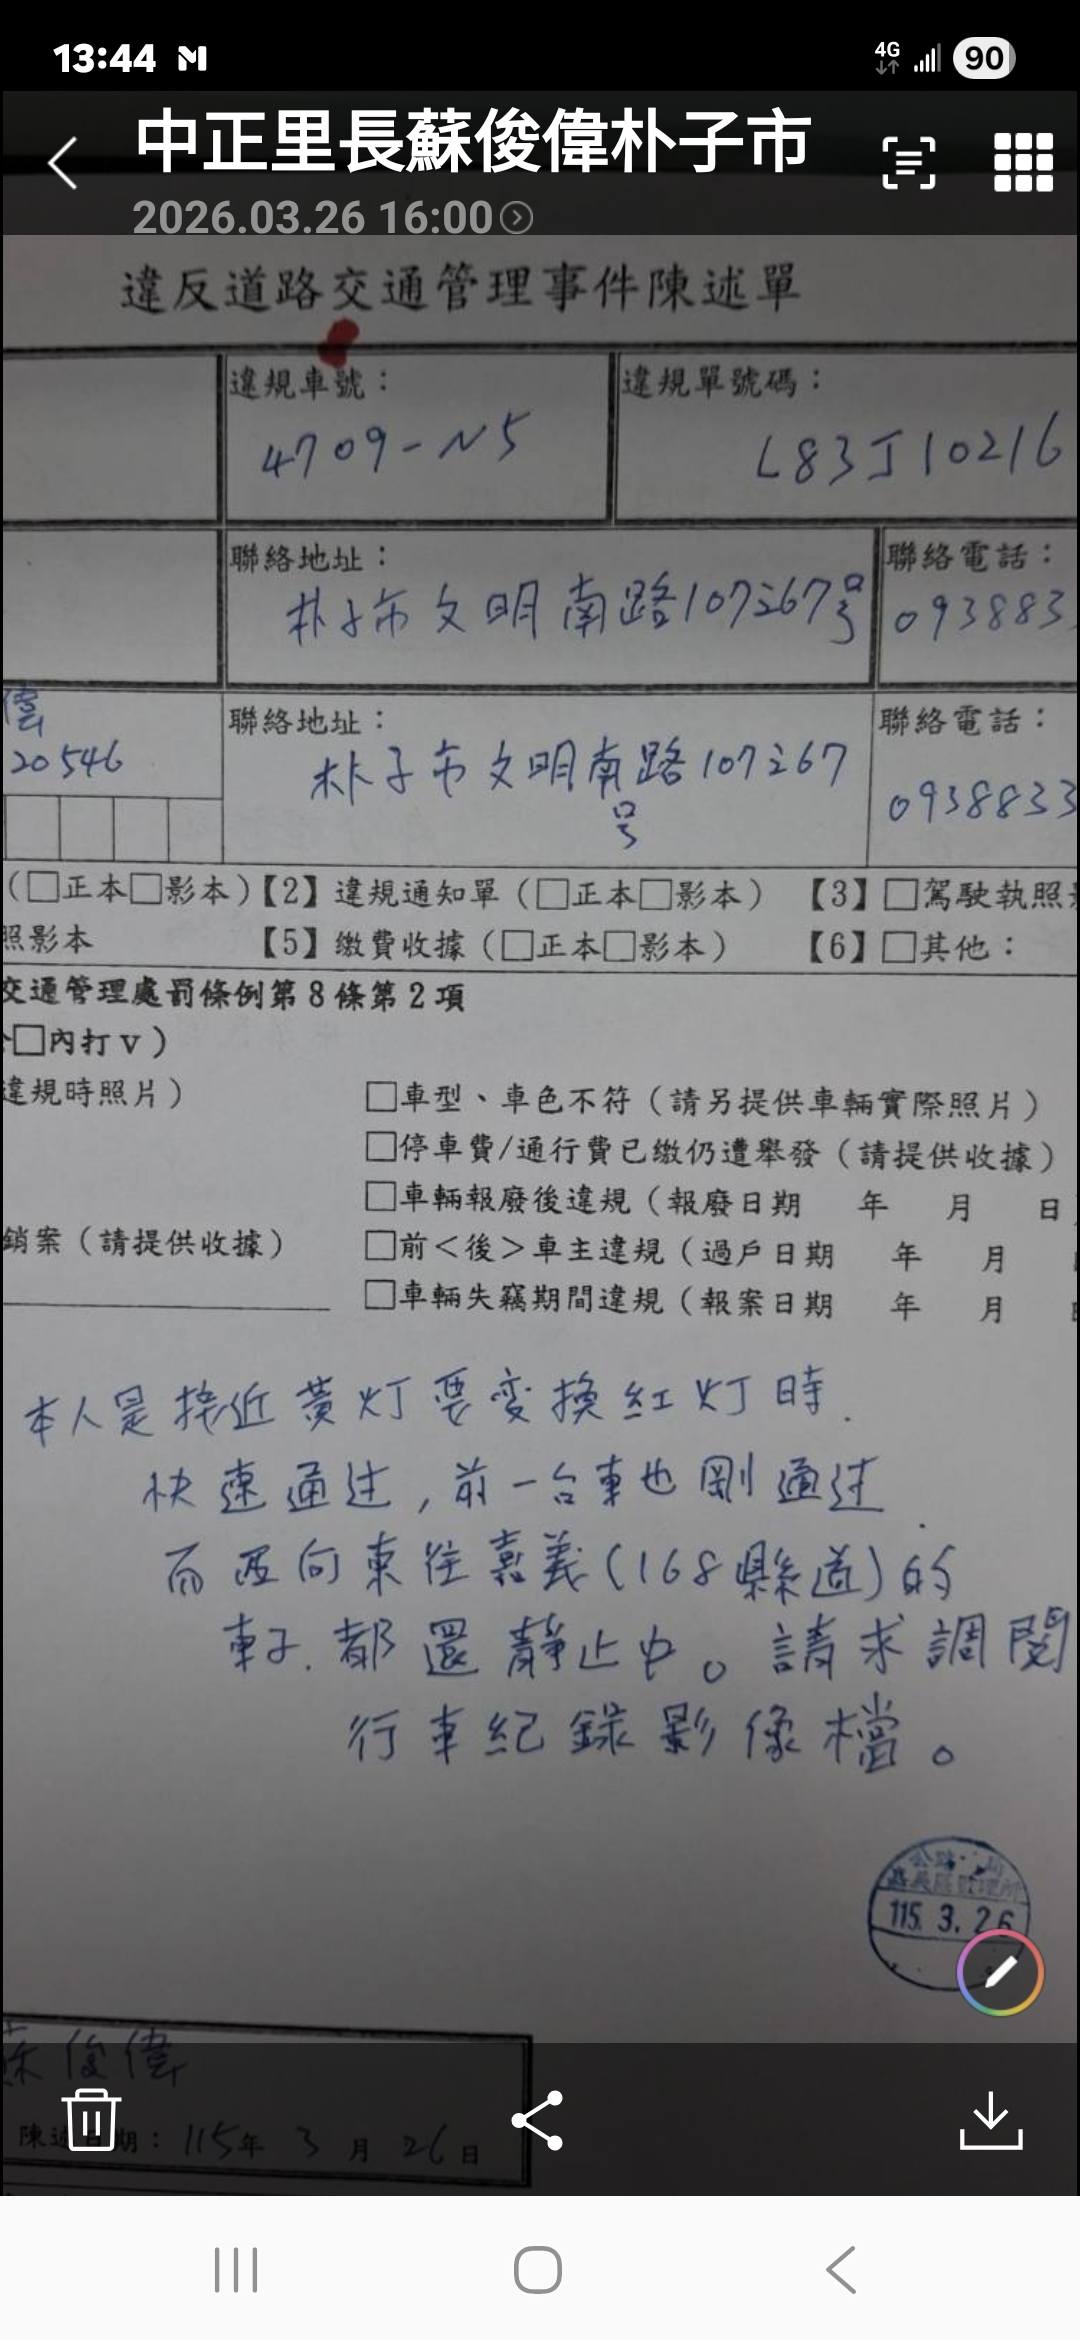 13:44
4G
90
中正里長蘇俊偉朴子市
2026.03.26 16:00
違反道路交通管理事件陳述單
違規車號：
違規單號碼：
4709-N5
L83J10216
聯絡地址：
聯絡電話：
朴子市文明南路107之67号
093883
偉
20546
聯絡地址：
聯絡電話：
朴子市文明南路107之67
号
0938833
（□正本□影本）【2】違規通知單（□正本□影本）【3】□駕駛執照
照影本 【5】繳費收據（□正本□影本）【6】□其他：
交通管理處罰條例第8條第2項
□內打v）
違規時照片）
□車型、車色不符（請另提供車輛實際照片）
□停車費/通行費已繳仍遭舉發（請提供收據）
□車輛報廢後違規（報廢日期 年 月 日
銷案（請提供收據）
□前＜後＞車主違規（過戶日期 年 月
□車輛失竊期間違規（報案日期 年 月
本人是接近黃灯要變換紅灯時.
快速通过，前一台車也剛通过.
而西向東往嘉義(168縣道)的
車子.都還靜止中。請求調閱
行車紀錄影像檔。
115.3.26
蘇俊偉
陳述日期：115年3月26日